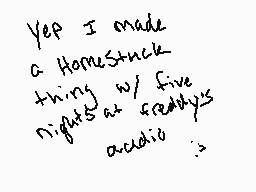 Yep I made
a Homestuck
thing w/ five
nights at freddy's
audio :>